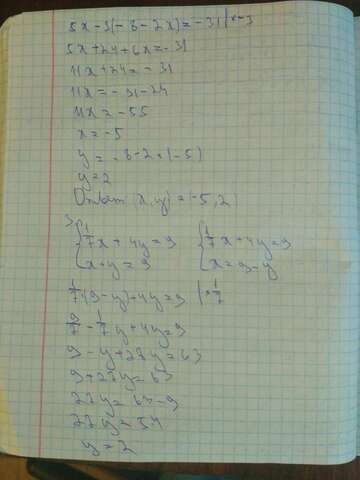 5x-3(-8-2x)=-31 |×-3
5x+24+6x=-31
11x+24=-31
11x=-31-24
11x=-55
x=-5
y=-8-2×(-5)
y=2
Ответ (x,y)=(-5,2)
3
{1/7x+4y=9 {1/7x+4y=9
{x+y=9 {x=9-y
1/7(9-y)+4y=9 |×1/7
9/7-1/7y+4y=9
9-y+28y=63
9+27y=63
27y=63-9
27y=54
y=2